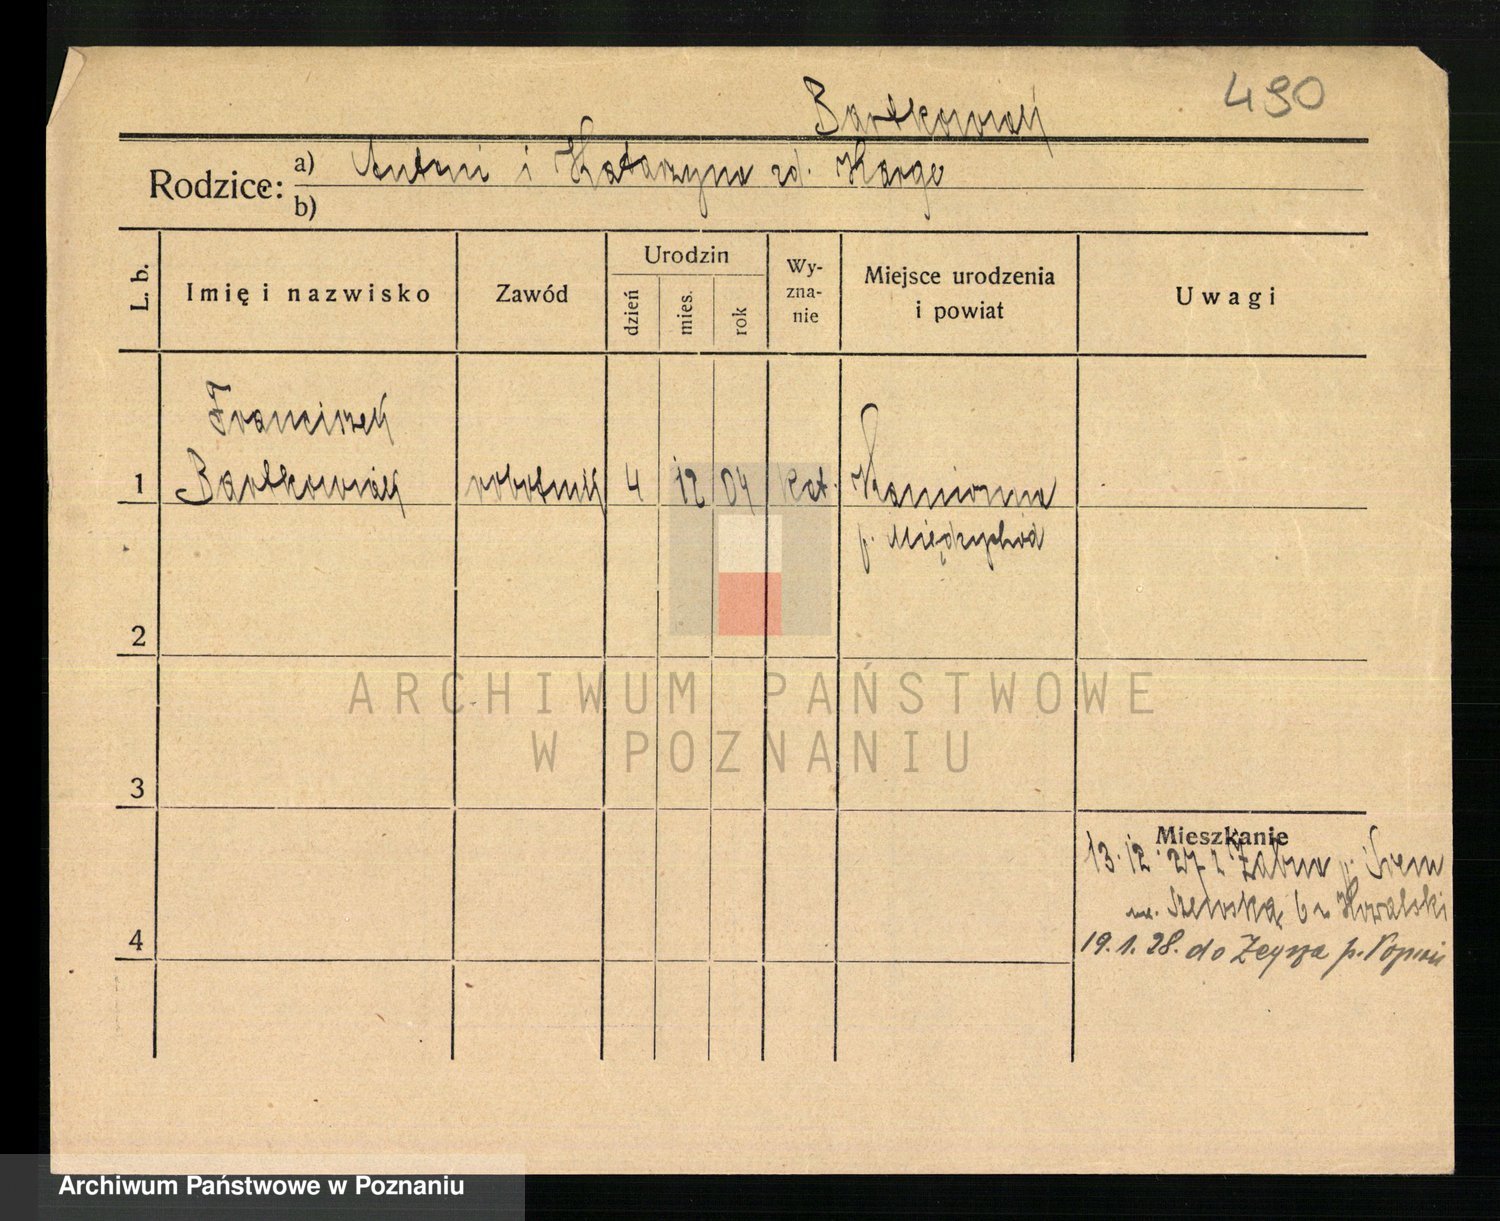 490
Bartkowiak
Rodzice: a) Antoni i Katarzyna zd. Harge
b)
L. b. Imię i nazwisko Zawód Urodzin dzień mies. rok Wyznanie Miejsce urodzenia i powiat Uwagi
Franciszek
1 Bartkowiak robotnik 4 12 04 kat. Kamionna
p. Międzychód
2
ARCHIWUM PAŃSTWOWE
W POZNANIU
3
Mieszkanie
13.12.27 z Żabna p. Śrem
Szewska 6 Kowalski
4
19.1.28. do p.
Archiwum Państwowe w Poznaniu